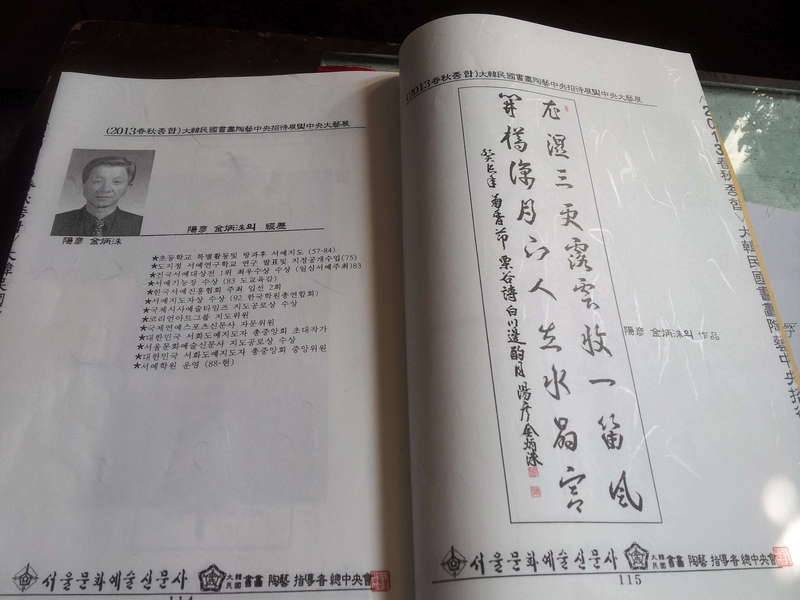 (2013春秋종합)大韓民國書畵陶藝中央招待展및中央大藝展
陽彦 金炳洙
陽彦 金炳洙의 經歷
★초등학교 특별활동및 방과후 서예지도 (57-84)
★도지정 서예연구학교 연구 발표및 지정공개수업(75)
★전국서예대상전 1위 최우수상 수상 (임심서예주최)83
★서예기능장 수상 (83 도교육감)
★한국서예진흥협회 주최 입선 2회
★서예지도자상 수상 (92 한국학원총연합회)
★국제시사예술타임즈 지도공로상 수상
★코리언아트그룹 지도위원
★국제연예스포츠신문사 자문위원
★대한민국 서화도예지도자 총중앙회 초대작가
★서울문화예술신문사 지도공로상 수상
★대한민국 서화도예지도자 총중앙회 중앙위원
★서예학원 운영 (88-현)
서울문화예술신문사 大韓民國 書畵 陶藝 指導者 總中央會
114
(2013春秋종합)大韓民國書畵陶藝中央招待展및中央大藝展
衣濕三更露雲收一笛風
開樽涼月下人在水晶宮
癸巳年 菊香節 栗谷詩 白川邊酌月 陽彦 金炳洙
陽彦 金炳洙의 作品
서울문화예술신문사 大韓民國 書畵 陶藝 指導者 總中央會
115
2013春秋종합)大韓民國書畵陶藝中央招